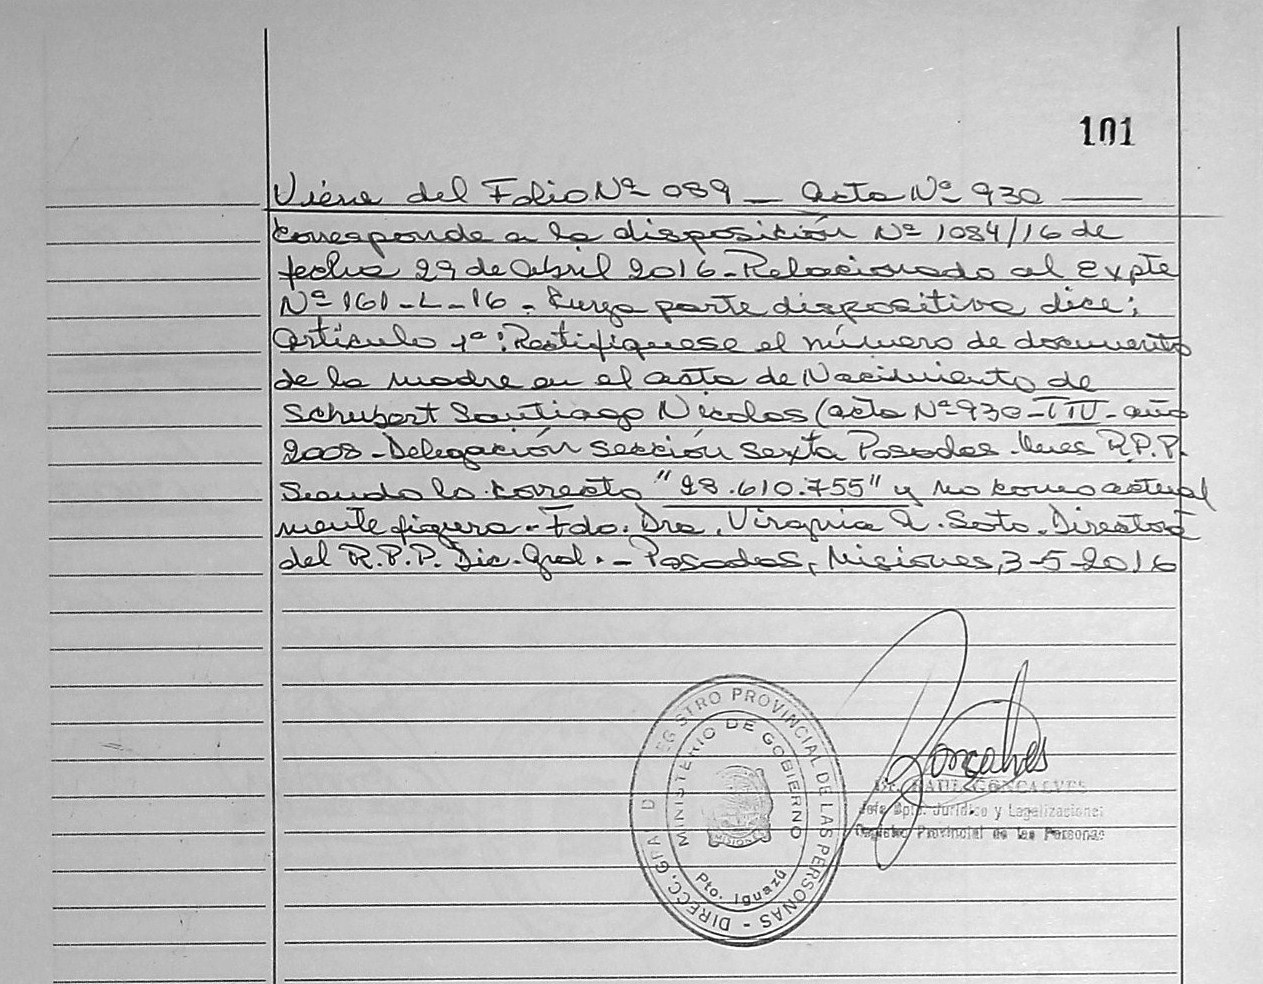 101
Viene del Folio Nº 089 _ Acta Nº 930
Corresponde a la disposición Nº 1084/16 de
fecha 29 de Abril 2016 - Relacionado al Expte
Nº 161-L-16 - Cuya parte dispositiva dice:
Artículo 1º: Rectifíquese el número de documento
de la madre en el acta de Nacimiento de
Schubert Santiago Nicolas (acta Nº 930 - TIV - año
2008 - Delegación Sección Sexta Posadas - Mnes R.P.P.
Siendo lo correcto "28.610.755" y no como actual
mente figura - Fdo. Dra. Virginia A. Soto - Directora
del R.P.P. Dic. Gral. - Posadas, Misiones, 3-5-2016
DIRECC. GRAL. REGISTRO PROVINCIAL DE LAS PERSONAS -
MINISTERIO DE GOBIERNO
MISIONES
Pto. Iguazú
Goncalves
Dr. RAUL GONCALVES
Jefe Dpto. Jurídico y Legalizaciones
Registro Provincial de las Personas